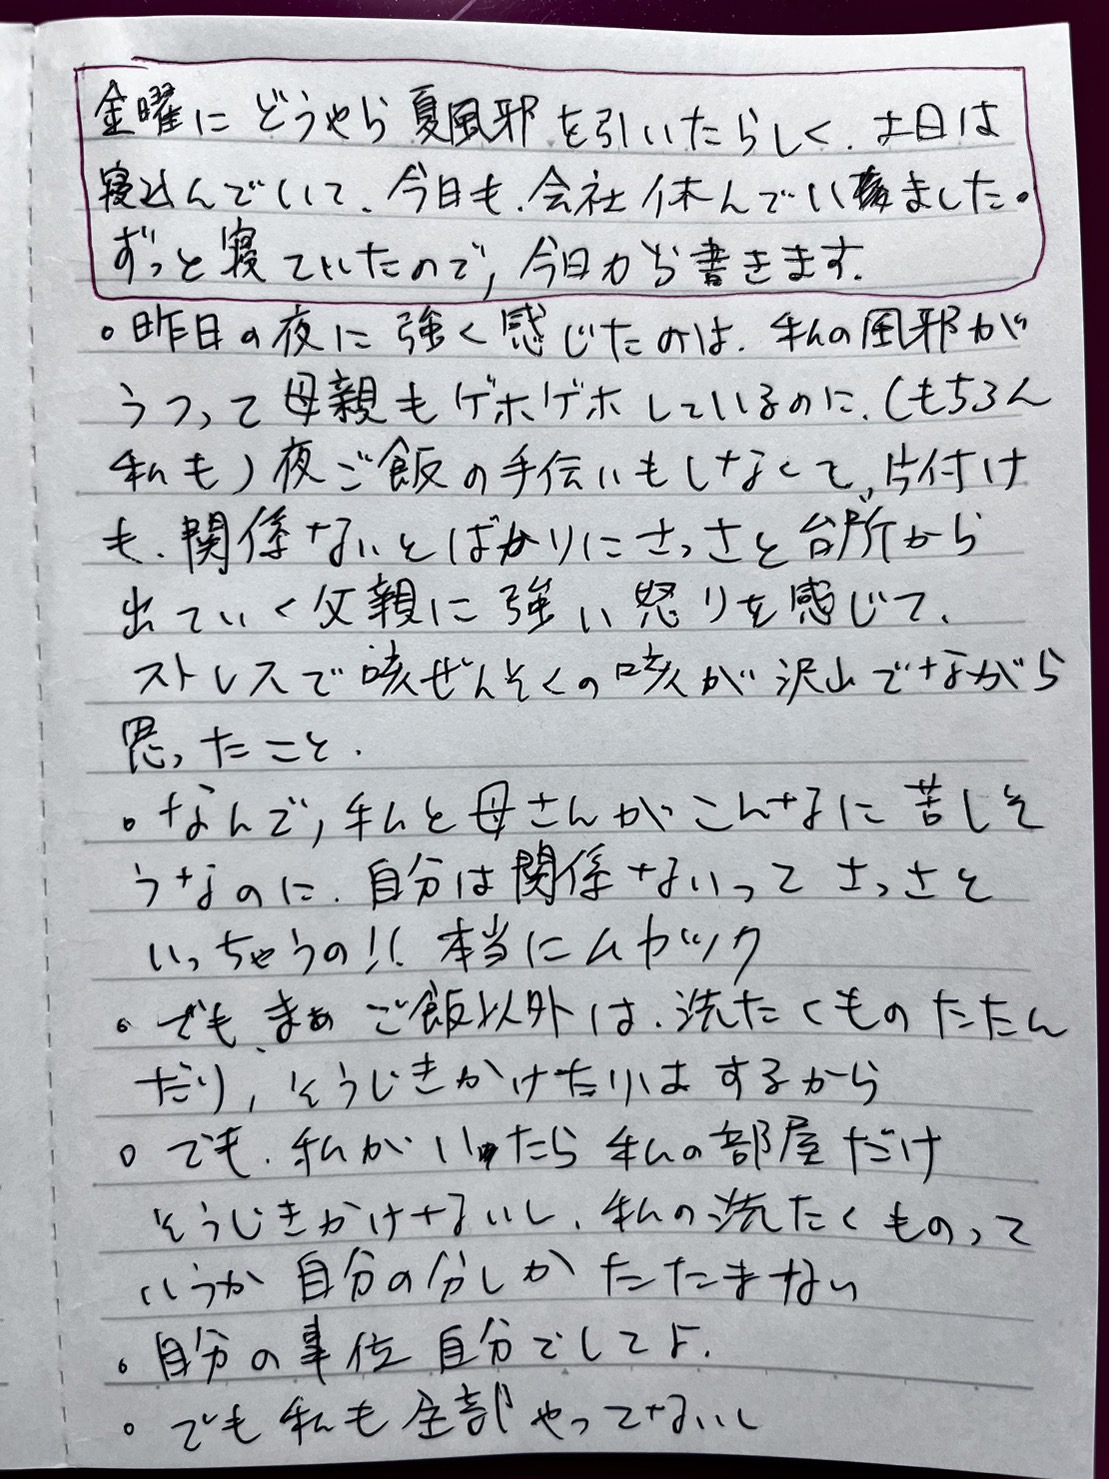 金曜に どうやら 夏風邪を引いたらしく、土日は
寝込んでいて、今日も、会社休んでいました。
ずっと寝ていたので、今日から書きます。
○昨日の夜に 強く感じたのは、私の風邪が
うつって母親もゲホゲホしているのに、(もちろん
私も)夜ご飯の手伝いもしなくて、片付け
も、関係ないとばかりにさっさと台所から
出ていく父親に強い怒りを感じて、
ストレスで咳ぜんそくの咳が沢山でながら
思ったこと、
○なんで、私と母さんがこんなに苦しそ
うなのに、自分は関係ないって さっさと
いっちゃうの!! 本当にムカツク
○でも、まぁ ご飯以外は、洗たくものたたん
だり、そうじきかけたりはするから
○でも、私がいたら 私の部屋だけ
そうじきかけないし、私の洗たくものって
いうか 自分の分しか たたまない
○自分の事位 自分でしてよ、
○でも 私も全部やってないし